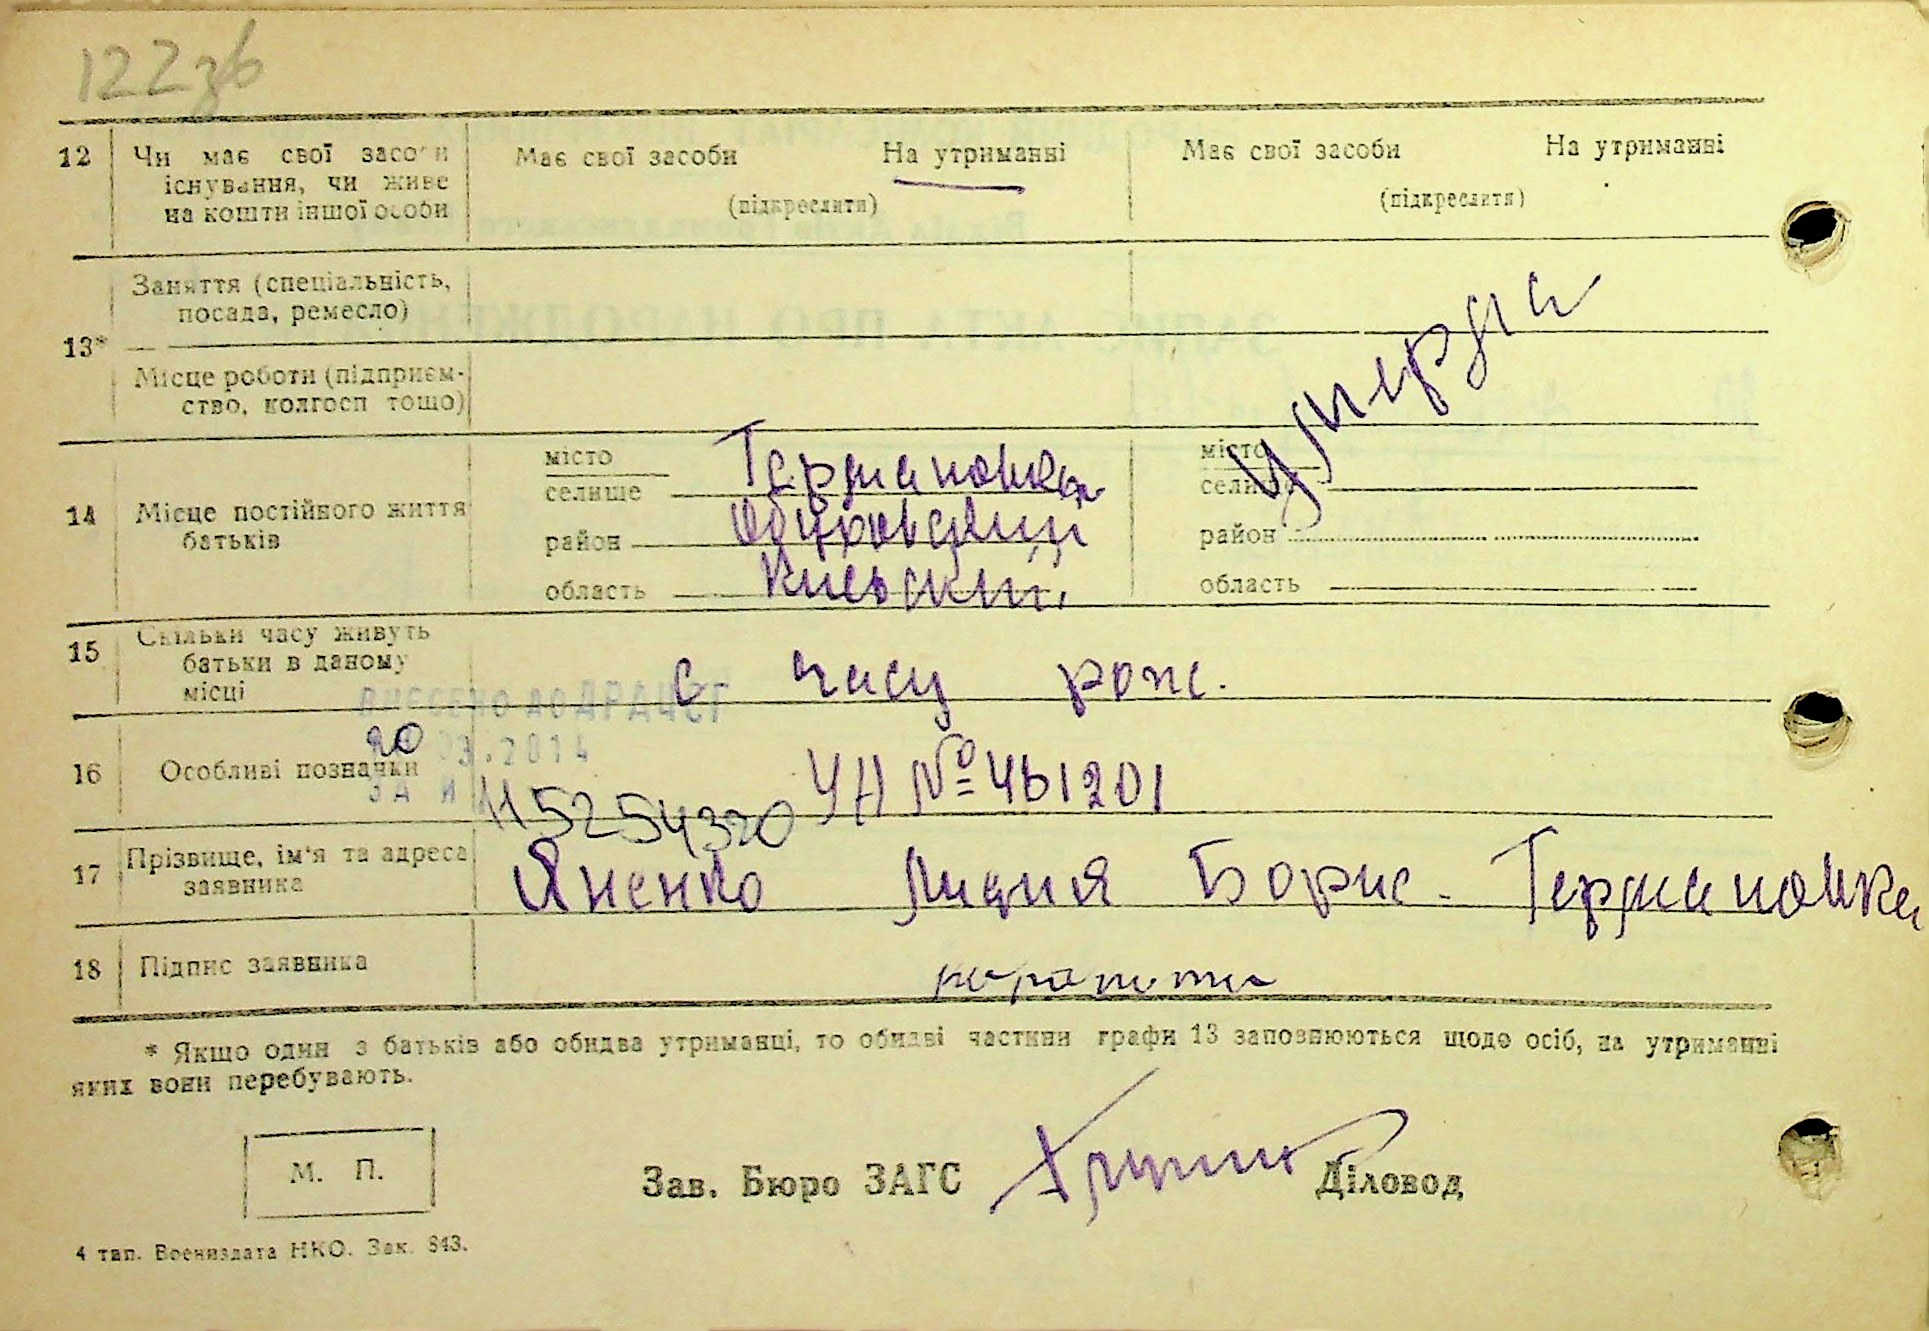 122зв
12 Чи має свої засоби Має свої засоби На утриманні Має свої засоби На утриманні
існування, чи живе
на кошти іншої особи (підкреслити) (підкреслити)
Заняття (спеціальність,
посада, ремесло)
13*
Місце роботи (підприєм-
ство, колгосп тощо)
умерла
місто Германовка місто
селище селище
14 Місце постійного життя
батьків
район Обуховский район
область Киевский область
15 Скільки часу живуть
батьки в даному
місці
с часу рож.
ВНЕСЕНО ДО ДРАЦСГ
20 03.2014
16 Особливі позначки УН № 461201
ЗА № 115254320
17 Прізвище, ім'я та адреса
заявника
Яненко Лидия Борис. Германовка
18 Підпис заявника
* Якщо один з батьків або обидва утриманці, то обидві частини графи 13 заповнюються щодо осіб, на утриманні
яких вони перебувають.
М. П.
Зав. Бюро ЗАГС Діловод
4 тип. Воениздата НКО. Зак. 843.